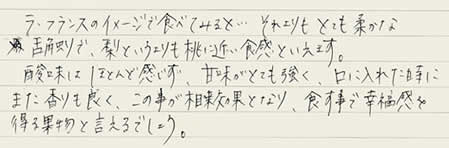 ラ・フランスのイメージで食べてみると… それよりもとても柔かな
舌触りで、梨というよりも桃に近い食感といえます。
酸味はほとんど感じず、甘味がとても強く、口に入れた時に
また香りも良く、この事が相乗効果となり、食す事で幸福感を
得る果物と言えるでしょう。